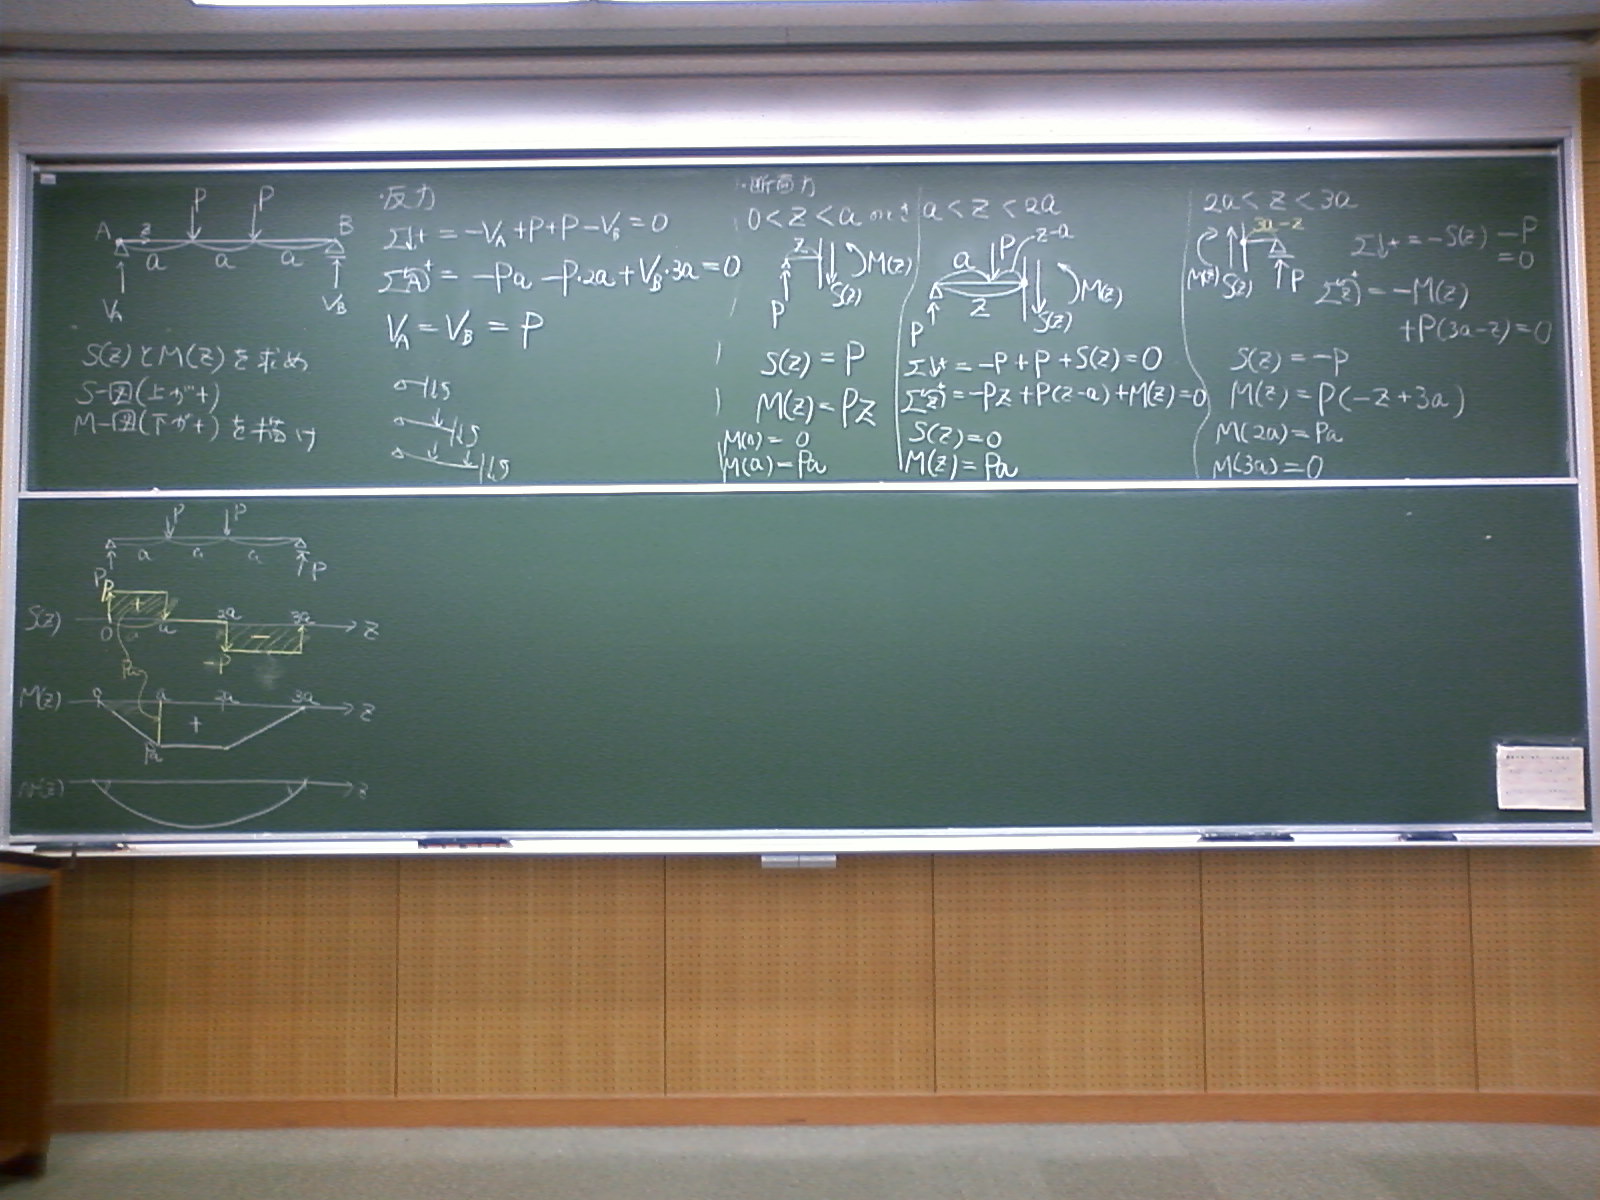 P P
A z B
a a a
V_A V_B
S(z)とM(z)を求め
S-図(上が+)
M-図(下が+)を描け
・反力
Σ↓+ = -V_A+P+P-V_B=0
ΣA+ = -Pa-P·2a+V_B·3a=0
V_A=V_B=P
・断面力
0<z<a のとき
z M(z)
S(z)
P
S(z)=P
M(z)=Pz
M(0)=0
M(a)=Pa
a<z<2a
P z-a
a
z M(z)
S(z)
P
Σ↓+ = -P+P+S(z)=0
Σz+ = -Pz+P(z-a)+M(z)=0
S(z)=0
M(z)=Pa
2a<z<3a
3a-z
M(z) S(z) P
Σ↓+ = -S(z)-P
=0
Σz+ = -M(z)
+P(3a-z)=0
S(z)=-P
M(z)=P(-z+3a)
M(2a)=Pa
M(3a)=0
P P
a a a
P P
P
S(z) + 2a 3a
0 a - z
-P
Pa
M(z) 0 a 2a 3a z
+
Pa
M(z) z